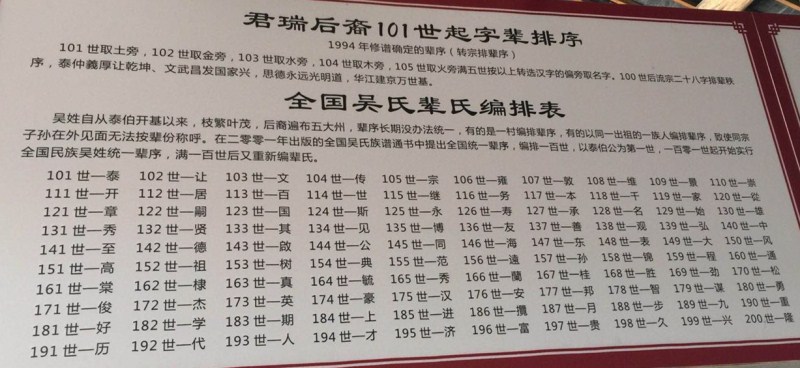 君瑞后裔101世起字辈排序
1994年修谱确定的辈序（转宗排辈序）
101世取土旁，102世取金旁，103世取水旁，104世取木旁，105世取火旁满五世按以上转选汉字的偏旁取名字。100世后流宗二十八字排辈秩
序，泰仲義厚让乾坤、文武昌发国家兴，思德永远光明道，华江建京万世基。
全国吴氏辈氏编排表
吴姓自从泰伯开基以来，枝繁叶茂，后裔遍布五大州，辈序长期没办法统一，有的是一村编排辈序，有的以同一出祖的一族人编排辈序，致使同宗
子孙在外见面无法按辈份称呼。在二零零一年出版的全国吴氏族谱通书中提出全国统一辈序，编排一百世，以泰伯公为第一世，一百零一世起开始实行
全国民族吴姓统一辈序，满一百世后又重新编辈氏。
101世—泰 102世—让 103世—文 104世—传 105世—宗 106世—雍 107世—敦 108世—维 109世—景 110世—崇
111世—开 112世—居 113世—百 114世—世 115世—继 116世—务 117世—本 118世—千 119世—家 120世—從
121世—章 122世—嗣 123世—国 124世—斯 125世—永 126世—寿 127世—承 128世—名 129世—始 130世—雄
131世—秀 132世—贤 133世—其 134世—见 135世—博 136世—友 137世—善 138世—观 139世—弘 140世—中
141世—至 142世—德 143世—啟 144世—公 145世—同 146世—海 147世—东 148世—表 149世—大 150世—风
151世—高 152世—祖 153世—树 154世—典 155世—范 156世—遠 157世—孙 158世—锦 159世—程 160世—通
161世—棠 162世—棣 163世—真 164世—毓 165世—秀 166世—蘭 167世—桂 168世—胜 169世—劲 170世—松
171世—俊 172世—杰 173世—英 174世—豪 175世—汉 176世—安 177世—邦 178世—智 179世—谋 180世—勇
181世—好 182世—学 183世—期 184世—上 185世—进 186世—攢 187世—月 188世—步 189世—九 190世—重
191世—历 192世—代 193世—人 194世—才 195世—济 196世—富 197世—贵 198世—久 199世—兴 200世—隆